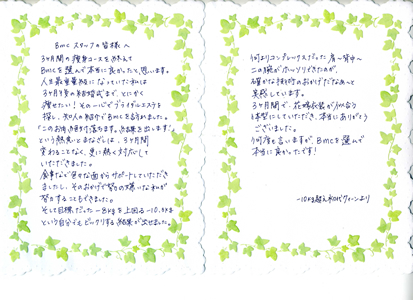 BMC スタッフの皆様へ
3ヶ月間の痩身コースを終えて
BMCを選んで本当に良かったと思います。
人生最重量級になっていた私は
3ヶ月後の結婚式まで、とにかく
痩せたい！その一心でブライダルエステを
探し、知人の紹介でBMCを訪れました。
「このお肉は落ちます。結果を出します!」
という熱意とまなざしは、3ヶ月間
変わることなく、更に熱く対応して
いただきました。
食事など様々な面からサポートしていただき
ましたし、そのおかげで努力の嫌いな私が
努力することもできました。
そして目標だった-8kgを上回る-10.5kg
という自分でもビックリする結果が出せました。
何よりコンプレックスだった肩〜背中〜
二の腕がホッソリできたのが、
確かな技術のおかげだなぁと
実感しています。
3ヶ月間で、花嫁衣装が似合う
体型にしていただき、本当にありがとう
ございました。
何度も言いますが、BMCを選んで
本当に良かったです!
-10kg越え